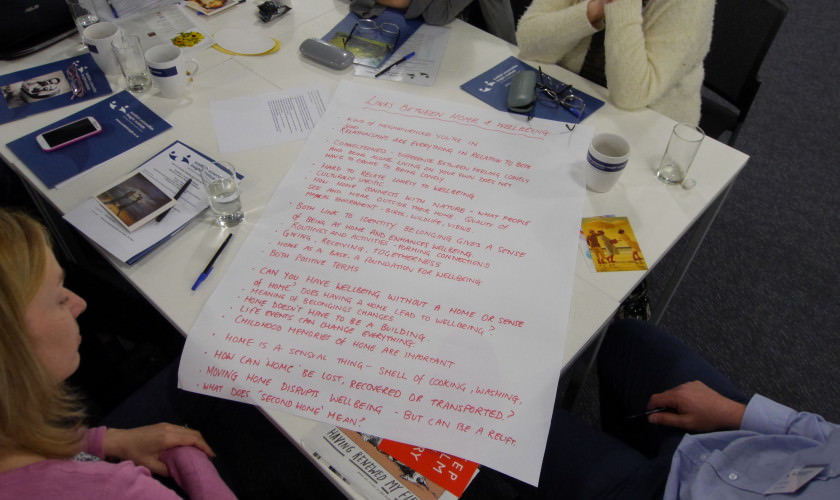 LINKS BETWEEN HOME & WELLBEING
• KIND OF NEIGHBOURHOOD YOU'RE IN
RELATIONSHIPS ARE EVERYTHING IN RELATION TO BOTH
• CONNECTEDNESS - DIFFERENCE BETWEEN FEELING LONELY
AND BEING ALONE. LIVING ON YOUR OWN DOES NOT
HAVE TO EQUATE TO BEING LONELY.
• HARD TO RELATE LONELY TO WELLBEING
CULTURALLY SPECIFIC
• HOW HOME CONNECTS WITH NATURE - WHAT PEOPLE
SEE AND HEAR OUTSIDE THEIR HOME. QUALITY OF
ENVIRONMENT - BIRDS, WILDLIFE, VIEWS.
• BOTH LINK TO IDENTITY. BELONGING GIVES A SENSE
OF BEING AT HOME AND ENHANCES WELLBEING.
• ROUTINES AND ACTIVITIES - FORMING CONNECTIONS
• GIVING, RECEIVING, TOGETHERNESS
• HOME AS A BASE, A FOUNDATION FOR WELLBEING
• BOTH POSITIVE TERMS
• CAN YOU HAVE WELLBEING WITHOUT A HOME OR SENSE
OF HOME? DOES HAVING A HOME LEAD TO WELLBEING?
• MEANING OF BELONGINGS CHANGES.
• HOME DOESN'T HAVE TO BE A BUILDING.
• LIFE EVENTS CAN CHANGE EVERYTHING.
• CHILDHOOD MEMORIES OF HOME ARE IMPORTANT
• HOME IS A SENSUAL THING - SMELL OF COOKING, WASHING,
• HOW CAN 'HOME' BE LOST, RECOVERED OR TRANSPORTED?
• MOVING HOME DISRUPTS WELLBEING - BUT CAN BE A RELIEF.
• WHAT DOES 'SECOND HOME' MEAN?
HAVING RENEWED MY FI
EP
LM
RY